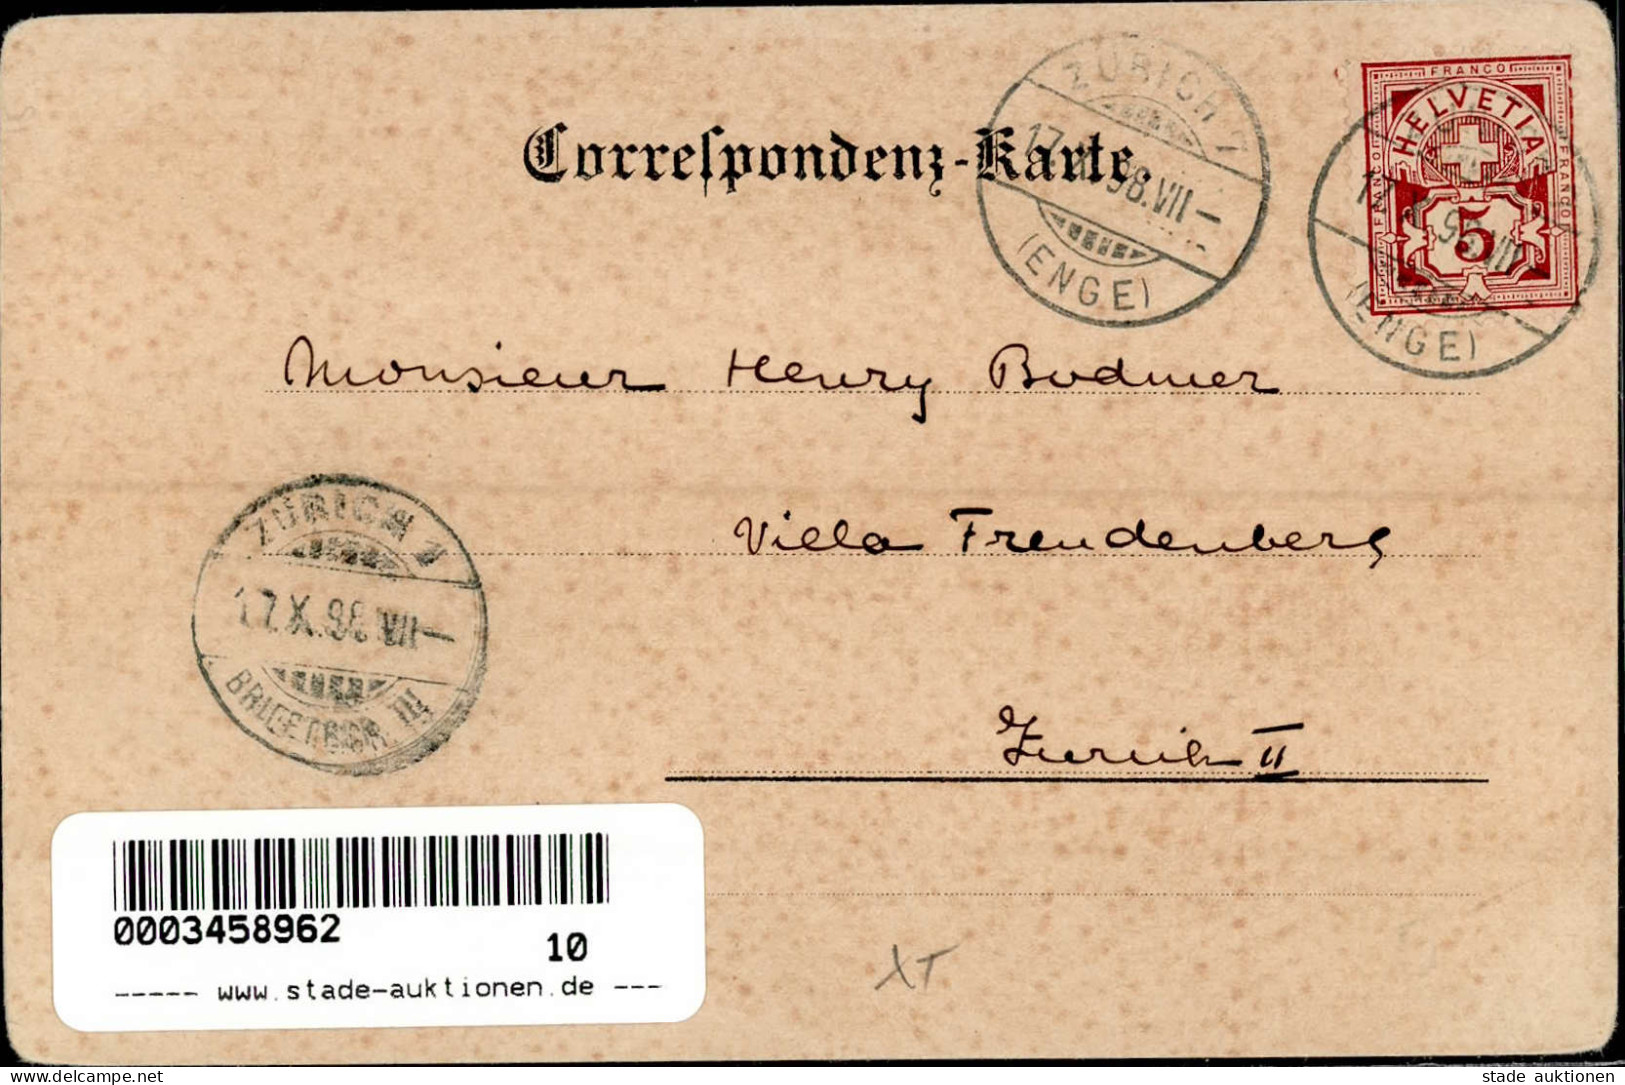 Correspondenz-Karte.
ZÜRICH 7
17.X.98.VII—
(ENGE)
FRANCO
HELVETIA
FRANCO
FRANCO
5
17.X.98.VII—
(ENGE)
Monsieur Henry Bodmer
Villa Freudenberg
Zurich II
ZÜRICH 1
17.X.98 VII—
BRIEFTRÄGER III
0003458962
10
----- www.stade-auktionen.de ---
XT
delcampe.net
stade auktionen